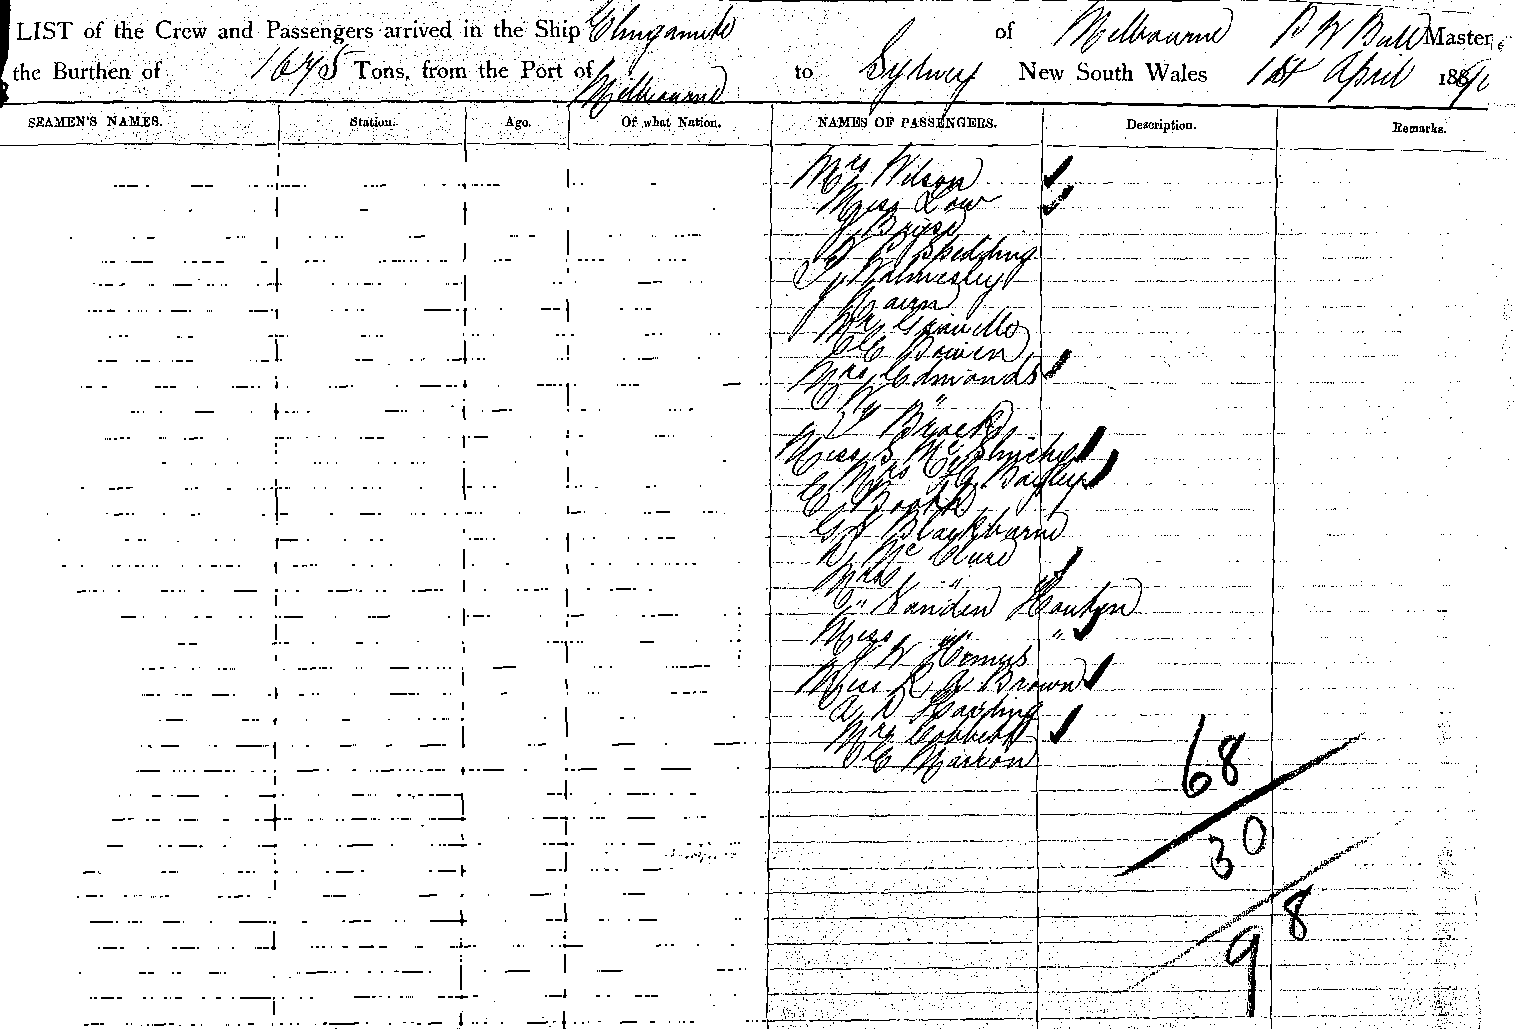 LIST of the Crew and Passengers arrived in the Ship Elingamite of Melbourne B W Bull Master,
the Burthen of 1675 Tons, from the Port of Melbourne to Sydney New South Wales 1st April 1891
SEAMEN'S NAMES. Station. Age. Of what Nation. NAMES OF PASSENGERS. Description. Remarks.
Mrs Wilson
Miss Low
Spedding
Walmesley
J Cairn
Mr
C Bowen
Mrs Edmonds
W "
Brock
Miss S
Mrs Bagley
C Booth
G J Blackburne
R McClure
Mrs "
" Vanden Houten
Miss " "
J W Hemus
Miss R A Brown
A D Harding
Mrs Cobbett
C Marron
68
30
98